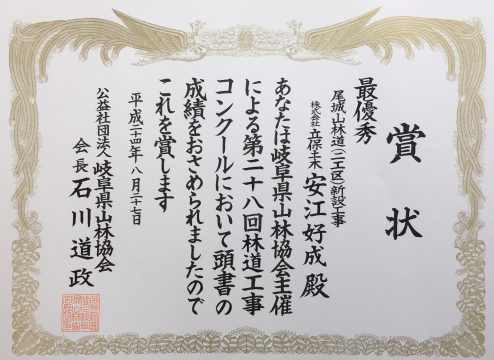 賞状
最優秀
尾城山林道(二工区)新設工事
株式会社立保土木 安江好成 殿
あなたは岐阜県山林協会主催
による第二十八回林道工事
コンクールにおいて頭書の
成績をおさめられましたので
これを賞します
平成二十四年八月二十七日
公益社団法人岐阜県山林協会
会長 石川道政